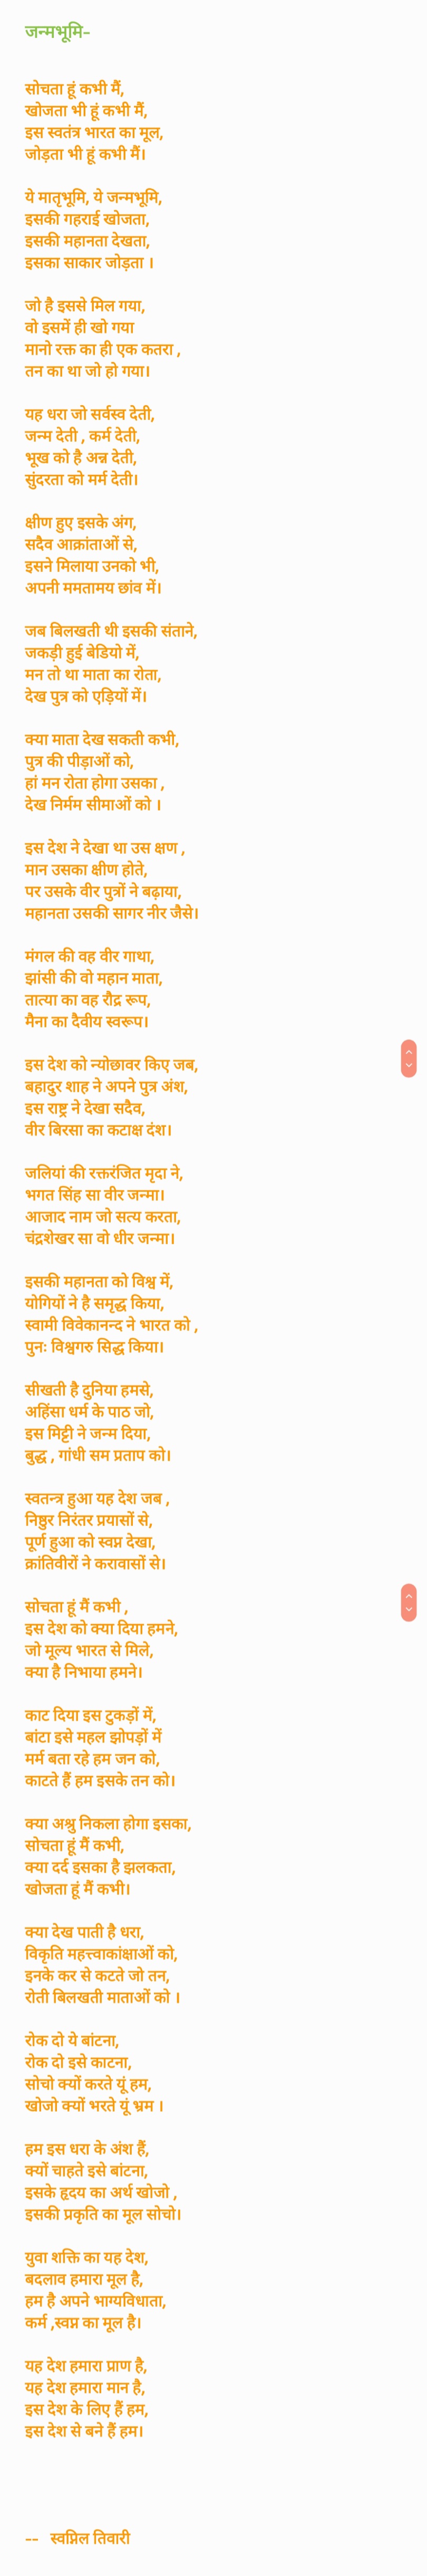 जन्मभूमि–
सोचता हूं कभी मैं,
खोजता भी हूं कभी मैं,
इस स्वतंत्र भारत का मूल,
जोड़ता भी हूं कभी मैं।
ये मातृभूमि, ये जन्मभूमि,
इसकी गहराई खोजता,
इसकी महानता देखता,
इसका साकार जोड़ता ।
जो है इससे मिल गया,
वो इसमें ही खो गया
मानो रक्त का ही एक कतरा ,
तन का था जो हो गया।
यह धरा जो सर्वस्व देती,
जन्म देती , कर्म देती,
भूख को है अन्न देती,
सुंदरता को मर्म देती।
क्षीण हुए इसके अंग,
सदैव आक्रांताओं से,
इसने मिलाया उनको भी,
अपनी ममतामय छांव में।
जब बिलखती थी इसकी संताने,
जकड़ी हुई बेडियो में,
मन तो था माता का रोता,
देख पुत्र को एड़ियों में।
क्या माता देख सकती कभी,
पुत्र की पीड़ाओं को,
हां मन रोता होगा उसका ,
देख निर्मम सीमाओं को ।
इस देश ने देखा था उस क्षण ,
मान उसका क्षीण होते,
पर उसके वीर पुत्रों ने बढ़ाया,
महानता उसकी सागर नीर जैसे।
मंगल की वह वीर गाथा,
झांसी की वो महान माता,
तात्या का वह रौद्र रूप,
मैना का दैवीय स्वरूप।
इस देश को न्योछावर किए जब,
बहादुर शाह ने अपने पुत्र अंश,
इस राष्ट्र ने देखा सदैव,
वीर बिरसा का कटाक्ष दंश।
जलियां की रक्तरंजित मृदा ने,
भगत सिंह सा वीर जन्मा।
आजाद नाम जो सत्य करता,
चंद्रशेखर सा वो धीर जन्मा।
इसकी महानता को विश्व में,
योगियों ने है समृद्ध किया,
स्वामी विवेकानन्द ने भारत को ,
पुनः विश्वगरु सिद्ध किया।
सीखती है दुनिया हमसे,
अहिंसा धर्म के पाठ जो,
इस मिट्टी ने जन्म दिया,
बुद्ध , गांधी सम प्रताप को।
स्वतन्त्र हुआ यह देश जब ,
निष्ठुर निरंतर प्रयासों से,
पूर्ण हुआ को स्वप्न देखा,
क्रांतिवीरों ने करावासों से।
सोचता हूं मैं कभी ,
इस देश को क्या दिया हमने,
जो मूल्य भारत से मिले,
क्या है निभाया हमने।
काट दिया इस टुकड़ों में,
बांटा इसे महल झोपड़ों में
मर्म बता रहे हम जन को,
काटते हैं हम इसके तन को।
क्या अश्रु निकला होगा इसका,
सोचता हूं मैं कभी,
क्या दर्द इसका है झलकता,
खोजता हूं मैं कभी।
क्या देख पाती है धरा,
विकृति महत्त्वाकांक्षाओं को,
इनके कर से कटते जो तन,
रोती बिलखती माताओं को ।
रोक दो ये बांटना,
रोक दो इसे काटना,
सोचो क्यों करते यूं हम,
खोजो क्यों भरते यूं भ्रम ।
हम इस धरा के अंश हैं,
क्यों चाहते इसे बांटना,
इसके हृदय का अर्थ खोजो ,
इसकी प्रकृति का मूल सोचो।
युवा शक्ति का यह देश,
बदलाव हमारा मूल है,
हम है अपने भाग्यविधाता,
कर्म ,स्वप्न का मूल है।
यह देश हमारा प्राण है,
यह देश हमारा मान है,
इस देश के लिए हैं हम,
इस देश से बने हैं हम।
–– स्वप्निल तिवारी